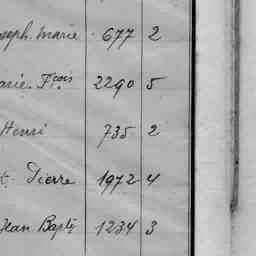 oseph. Marie 677 2
arie. Fçois 2290 5
Henri 735 2
Pierre 1972 4
Jean Bapte 1234 3